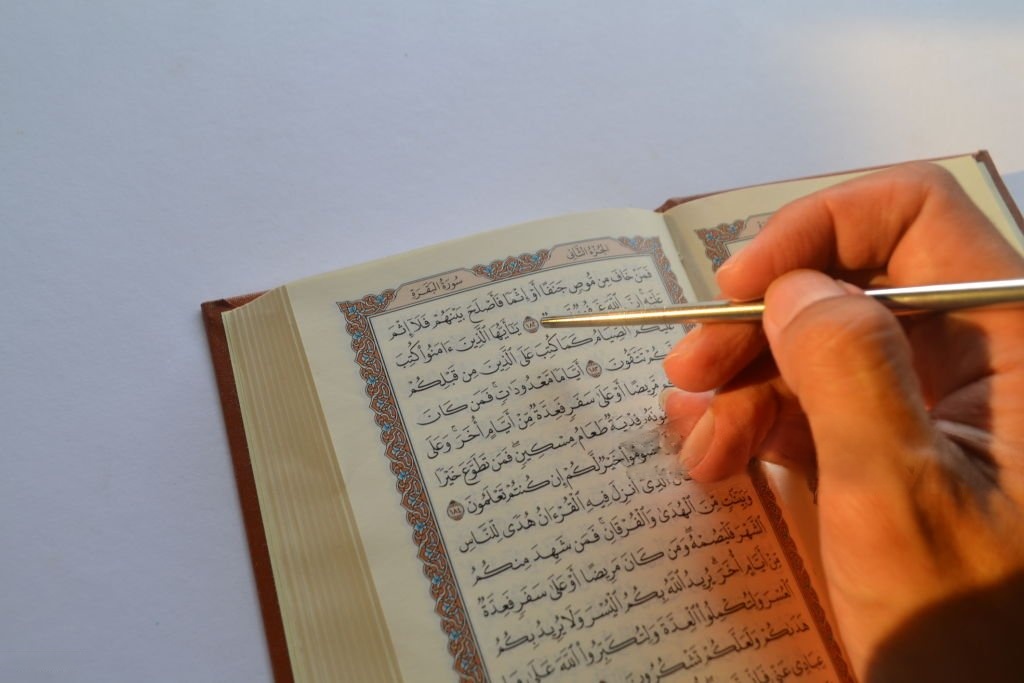 الجُزْءُ الثَّانِي سُورَةُ البَقَرَةِ
فَمَنْ خَافَ مِن مُّوصٍ جَنَفًا أَوْ إِثْمًا فَأَصْلَحَ بَيْنَهُمْ فَلَآ إِثْمَ
عَلَيْهِ إِنَّ ٱللَّهَ ١٨٢ يَٰٓأَيُّهَا ٱلَّذِينَ ءَامَنُوا۟ كُتِبَ
عَلَيْكُمُ ٱلصِّيَامُ كَمَا كُتِبَ عَلَى ٱلَّذِينَ مِن قَبْلِكُمْ
تَتَّقُونَ ١٨٣ أَيَّامًا مَّعْدُودَٰتٍ فَمَن كَانَ
مَّرِيضًا أَوْ عَلَىٰ سَفَرٍ فَعِدَّةٌ مِّنْ أَيَّامٍ أُخَرَ وَعَلَى
فِدْيَةٌ طَعَامُ مِسْكِينٍ فَمَن تَطَوَّعَ خَيْرًا
خَيْرٌ لَّكُمْ إِن كُنتُمْ تَعْلَمُونَ ١٨٤
ٱلَّذِىٓ أُنزِلَ فِيهِ ٱلْقُرْءَانُ هُدًى لِّلنَّاسِ
وَبَيِّنَٰتٍ مِّنَ ٱلْهُدَىٰ وَٱلْفُرْقَانِ فَمَن شَهِدَ مِنكُمُ
ٱلشَّهْرَ فَلْيَصُمْهُ وَمَن كَانَ مَرِيضًا أَوْ عَلَىٰ سَفَرٍ فَعِدَّةٌ
مِّنْ أَيَّامٍ أُخَرَ يُرِيدُ ٱللَّهُ بِكُمُ ٱلْيُسْرَ وَلَا يُرِيدُ بِكُمُ
ٱلْعُسْرَ وَلِتُكْمِلُوا۟ ٱلْعِدَّةَ وَلِتُكَبِّرُوا۟ ٱللَّهَ عَلَىٰ
هَدَىٰكُمْ وَلَعَلَّكُمْ تَشْكُرُونَ
عِبَادِى عَنِّى